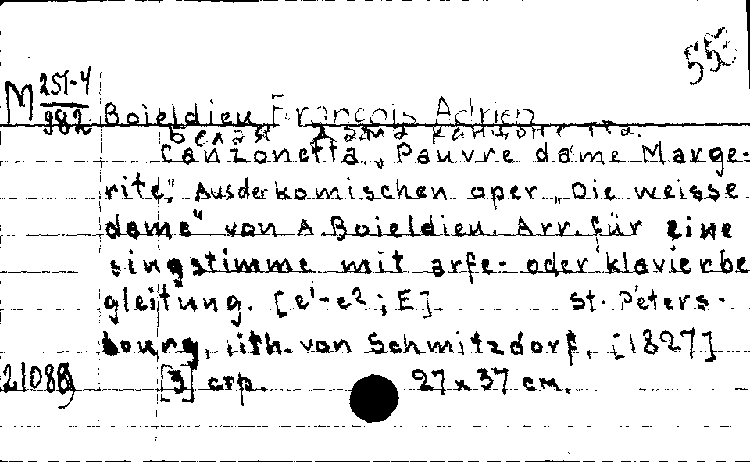 M 251-4
982
Boieldieu François Adrien
Canzonetta „Pauvre dame Marge-
rite", Aus der komischen oper „Die weisse
dame" von A. Boieldieu. Arr. für eine
singstimme mit arfe- oder klavierbe
gleitung. [e¹-e²; E] St. Peters-
bourg, lith. von Schmitzdorf, [1827]
21088 [3] стр. 27 x 37 см.